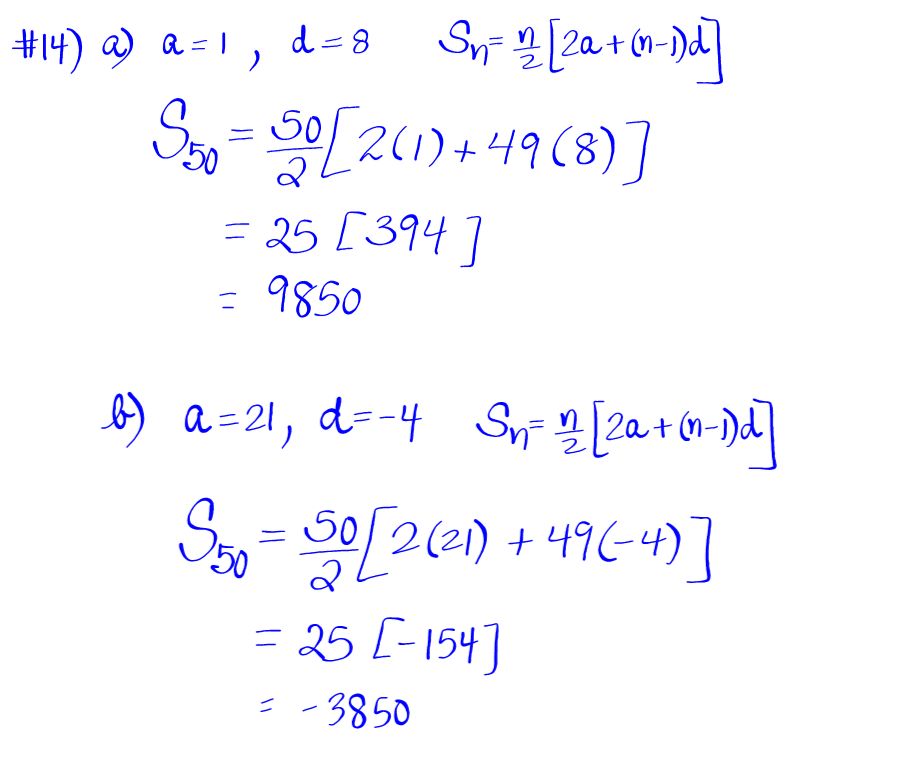 #14) a) a = 1 , d = 8 Sn = n/2 [2a + (n-1)d]
S50 = 50/2 [2(1) + 49(8)]
= 25 [394]
= 9850
b) a = 21, d = -4 Sn = n/2 [2a + (n-1)d]
S50 = 50/2 [2(21) + 49(-4)]
= 25 [-154]
= -3850